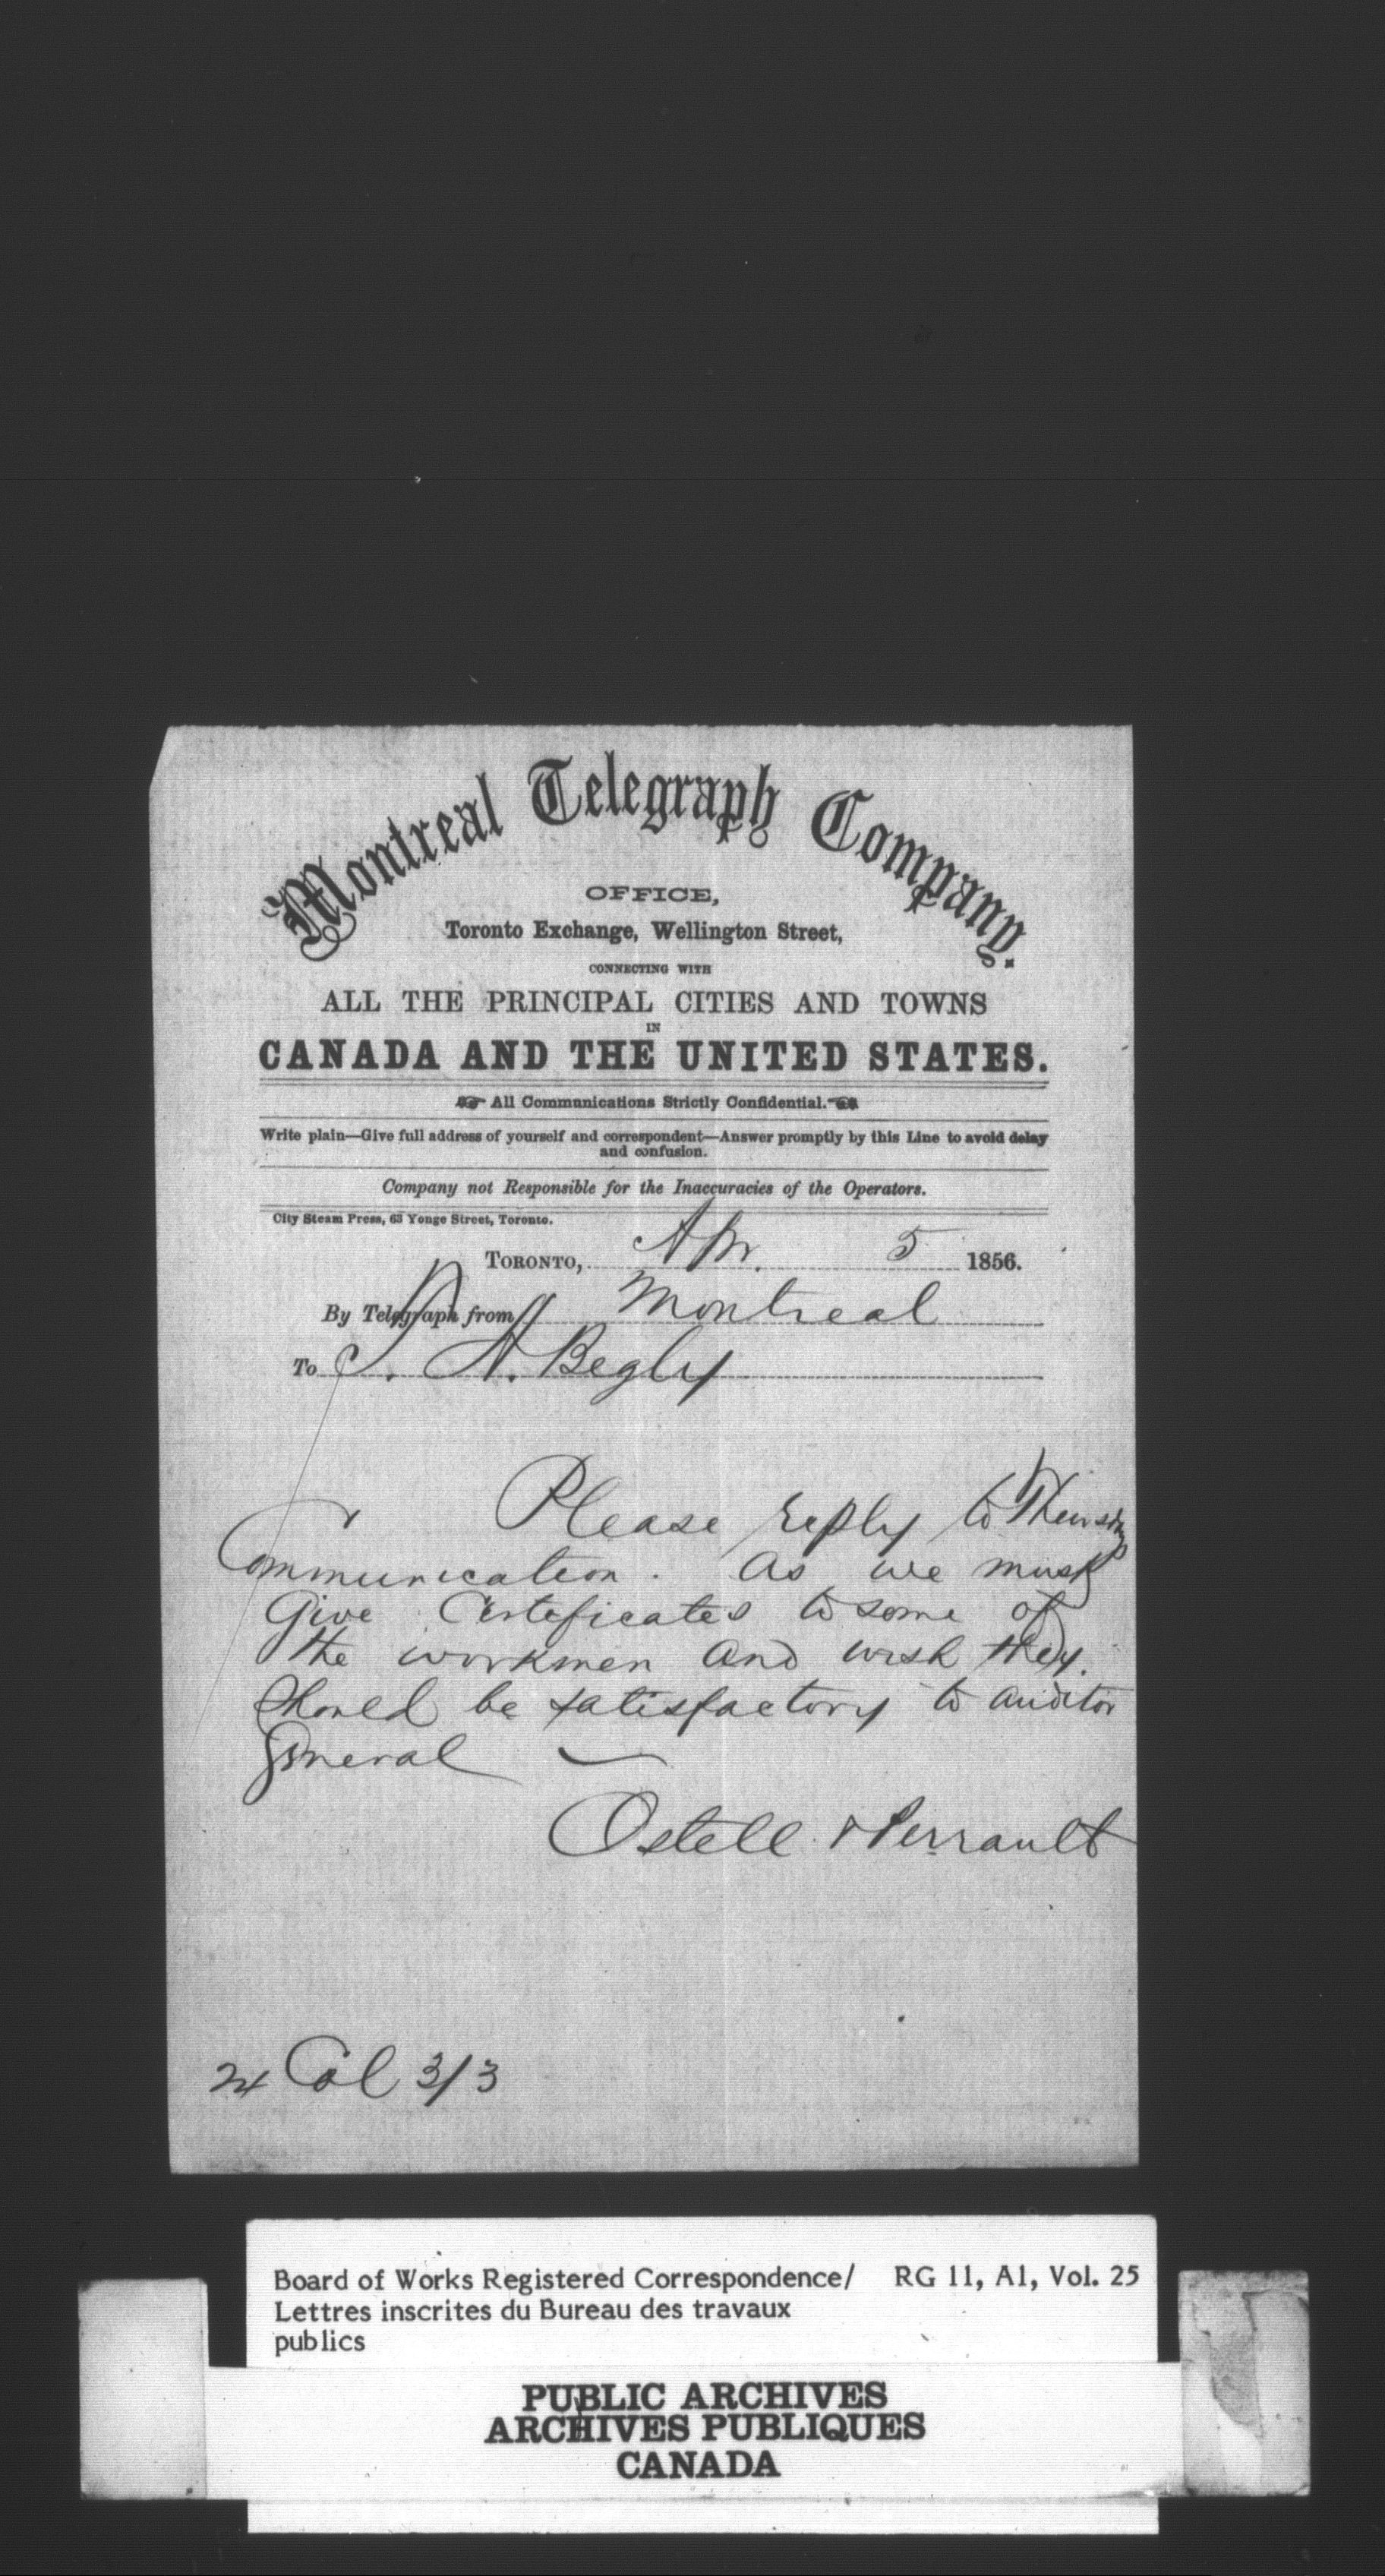 Montreal Telegraph Company.
OFFICE,
Toronto Exchange, Wellington Street,
CONNECTING WITH
ALL THE PRINCIPAL CITIES AND TOWNS
IN
CANADA AND THE UNITED STATES.
All Communications Strictly Confidential.
Write plain—Give full address of yourself and correspondent—Answer promptly by this Line to avoid delay
and confusion.
Company not Responsible for the Inaccuracies of the Operators.
City Steam Press, 63 Yonge Street, Toronto.
TORONTO, Apr. 5 1856.
By Telegraph from Montreal
To T. A. Begly
Please reply to Thursdays
Communication. As we must
Give Certificates to some of
the workmen and wish they
should be satisfactory to auditor
General —
Ostell & Perrault
24 Col 3/3
Board of Works Registered Correspondence/ RG 11, A1, Vol. 25
Lettres inscrites du Bureau des travaux
publics
PUBLIC ARCHIVES
ARCHIVES PUBLIQUES
CANADA